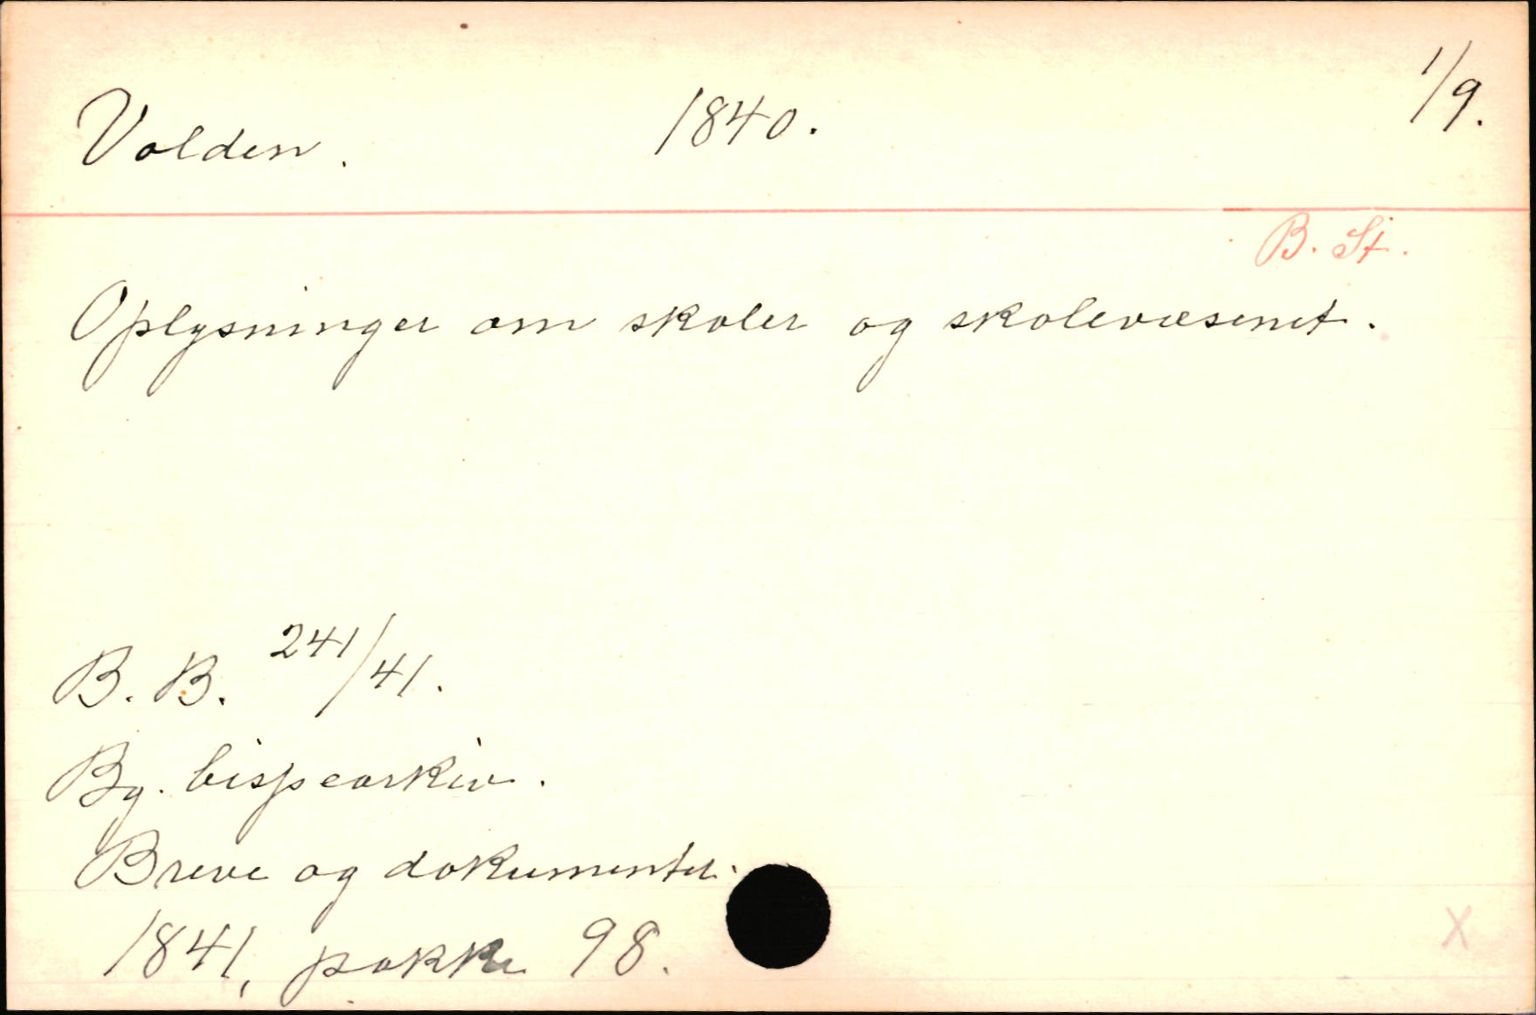 Volden. 1840. 1/9.
B. St.
Oplysninger om skoler og skolevæsenet.
B. B. 241/41.
Bg. bispearkiv.
Breve og dokumenter.
1841, pakke 98.
X